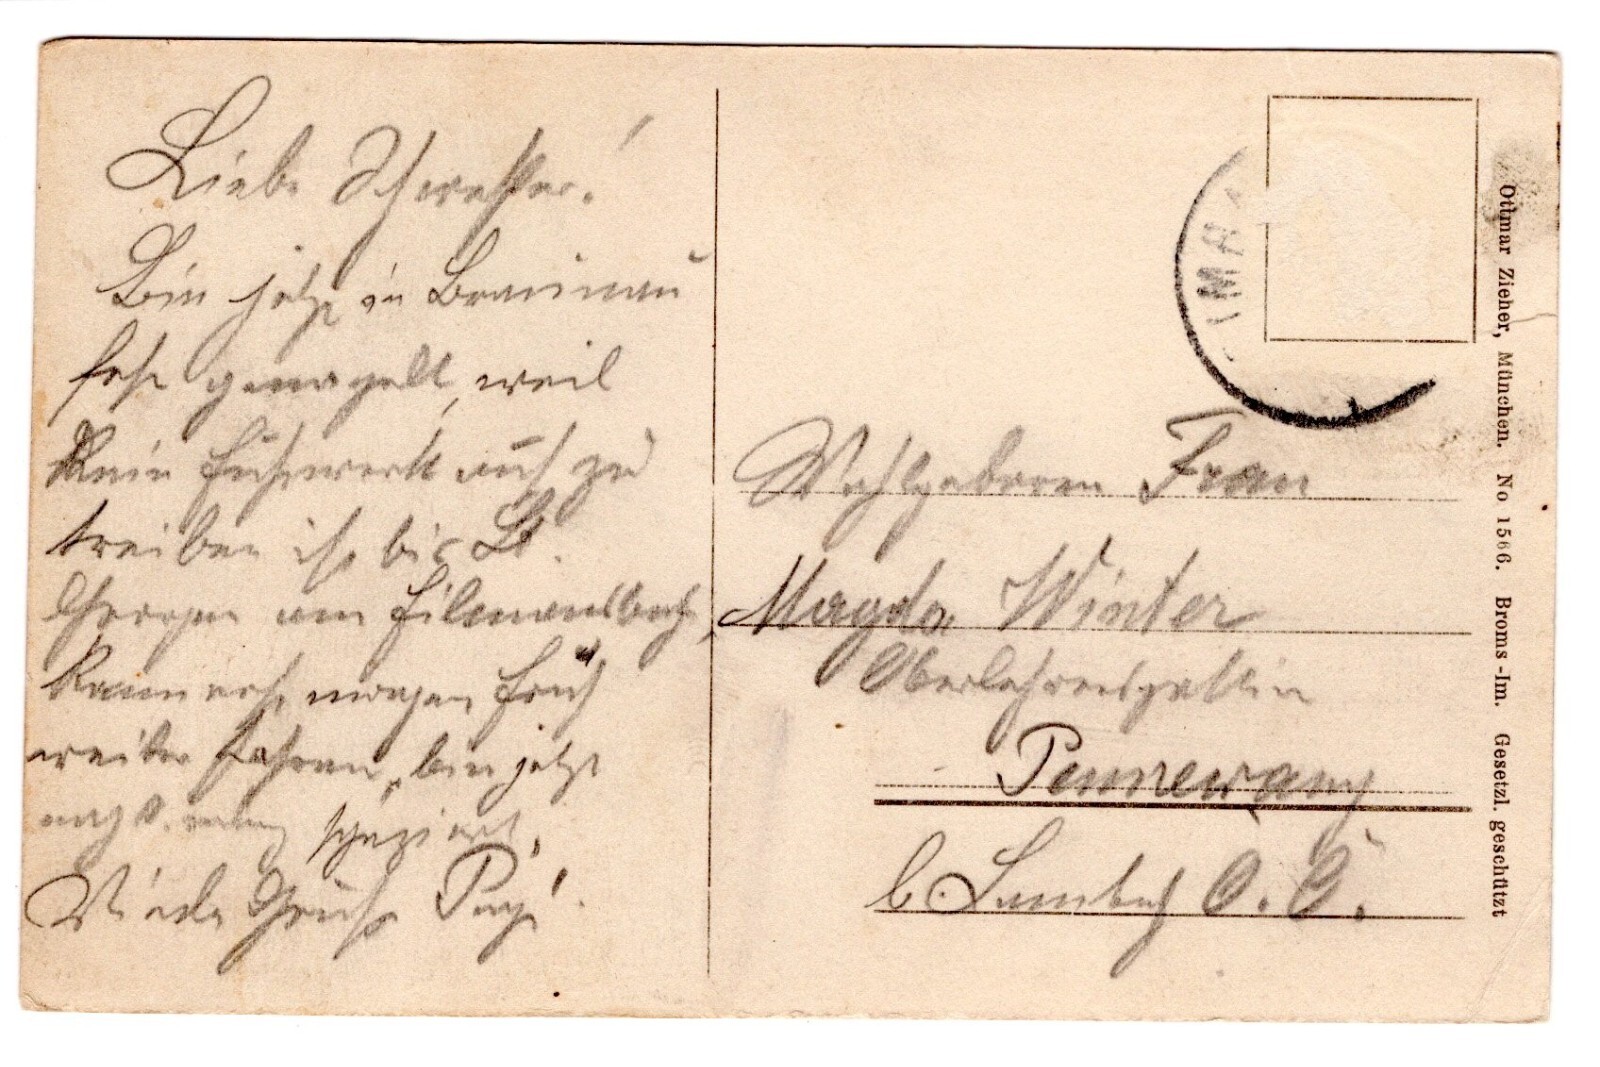 Liebe Schwester!
Bin jetzt in Braunau
fest genagelt, weil
kein Fuhrwerk auf zu
treiben ist bis St.
Georgen am Filmannsbach,
kann erst morgen früh
weiter fahren, bin jetzt
spazieren.
Viele Grüße
Wohlgeboren Frau
Magda Winter
Oberlehrersgattin
Pennewang
b. Lambach O. Ö.
Ottmar Zieher, München. No 1566. Broms-Im. Gesetzl. geschützt